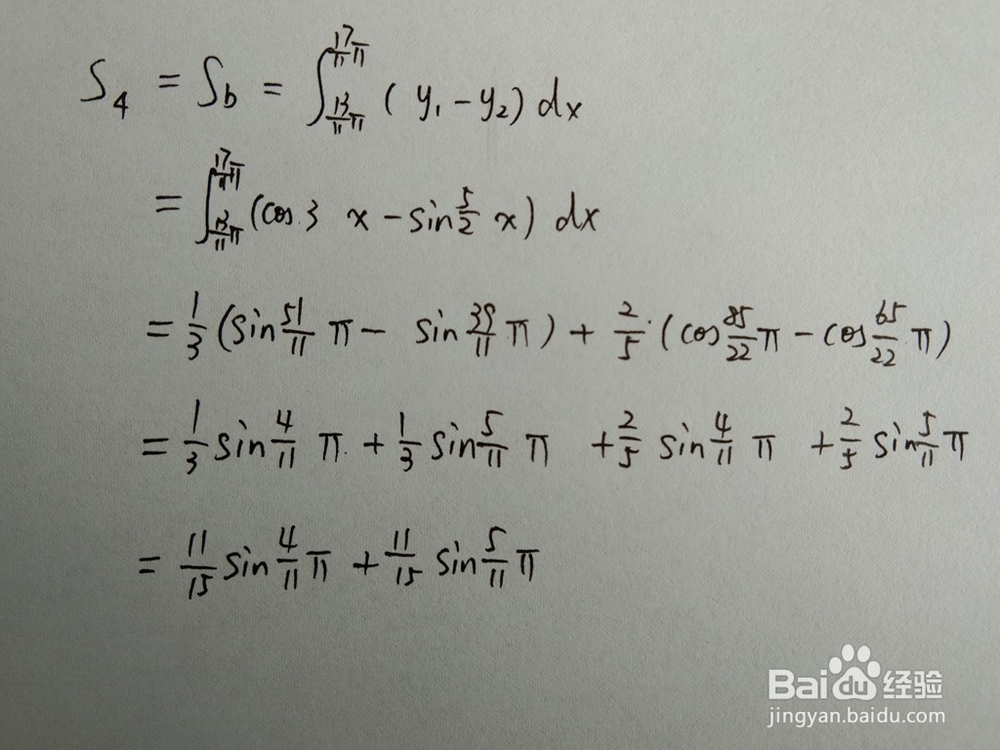 S₄ = S_b = ∫_{13/11 π}^{17/11 π} (y₁ - y₂) dx
= ∫_{13/11 π}^{17/11 π} (cos 3 x - sin 5/2 x) dx
= 1/3 (sin 51/11 π - sin 39/11 π) + 2/5 · (cos 85/22 π - cos 65/22 π)
= 1/3 sin 4/11 π + 1/3 sin 5/11 π + 2/5 sin 4/11 π + 2/5 sin 5/11 π
= 11/15 sin 4/11 π + 11/15 sin 5/11 π
Baidu经验
jingyan.baidu.com